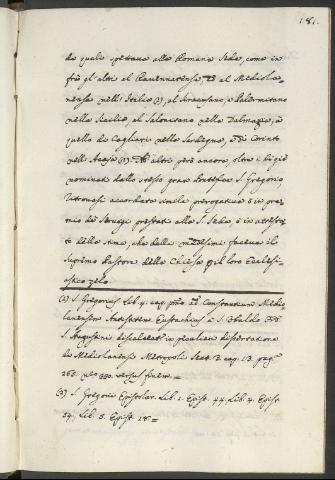 181.
do quale spettava alla Romana Sede, come in
frà gli altri al Ravennatense, ed al Mediola,
nense nell'Italia (2), al Siracusano, o Palermitano
nella Sicilia, al Salonitano nella Dalmazia, a
quello di Cagliari nella Sardegna, e di Corinto
nell'Acaja (3). Ad altri però ancora, oltre i già
nominati dallo stesso gran Pontefice S. Gregorio
ritrovasi accordata simile prerogativa o in pre,
mio de' servigi prestati alla S. Sede, o in attesta,
to della stima, che delli medesimi faceva il
Supremo Pastore della Chiesa per il loro Eccles-
iastico zelo.
(2) S. Gregorius Lib. 4. epist. ad Constantium Medio
lanensem Antistitem Eustachius a S. Ubaldo
S. Augustini discalceat. in peculiari dissertatione
de Mediolanensi Metropoli cap. 13. pag.
versus finem =
(3) S. Gregorii Epistolar. Lib. 1. Epist. 44. Lib. 4. Epist.
54. Lib. 5. Epist. 18 =